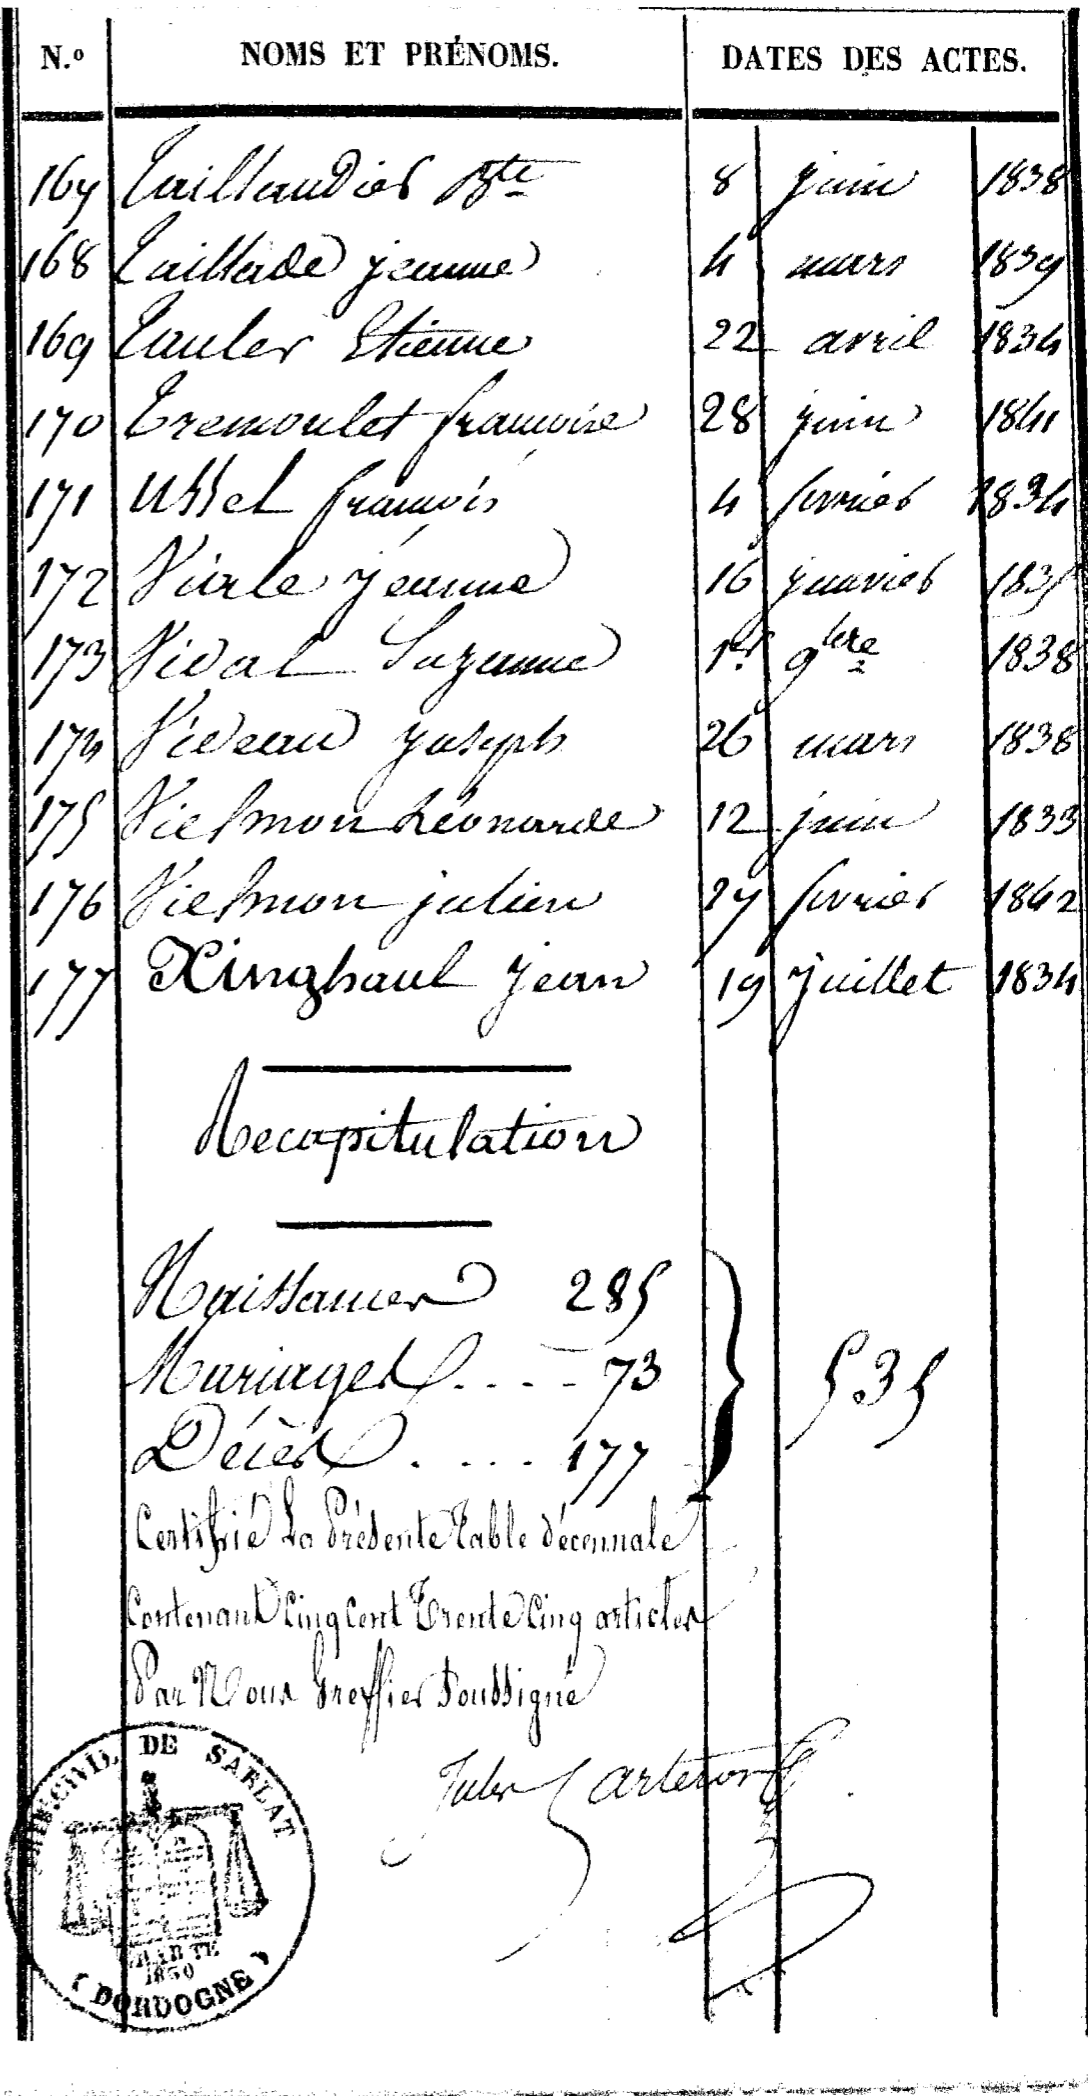 N.º NOMS ET PRÉNOMS. DATES DES ACTES.
167 Taillandier Bte 8 juin 1838
168 Taillade jeanne 4 mars 1839
169 Tauler Etienne 22 avril 1834
170 Tremoulet francoise 28 juin 1841
171 Ussel francois 4 fevrier 1834
172 Viale jeanne 16 janvier 1835
173 Vidal Suzanne 1er 9bre 1838
174 Videau joseph 26 mars 1838
175 Vielmon Léonarde 12 juin 1833
176 Vielmon julien 27 fevrier 1842
177 Xinghaul jean 19 juillet 1834
Recapitulation
Naissances 285
Mariages .... 73
Décès .... 177
535
Certifié La Présente Table décennale
Contenant Cinq Cent Trente Cinq articles
Par Nous Greffier Soussigné
Jules
CIVIL DE SARLAT
1830
(DORDOGNE)